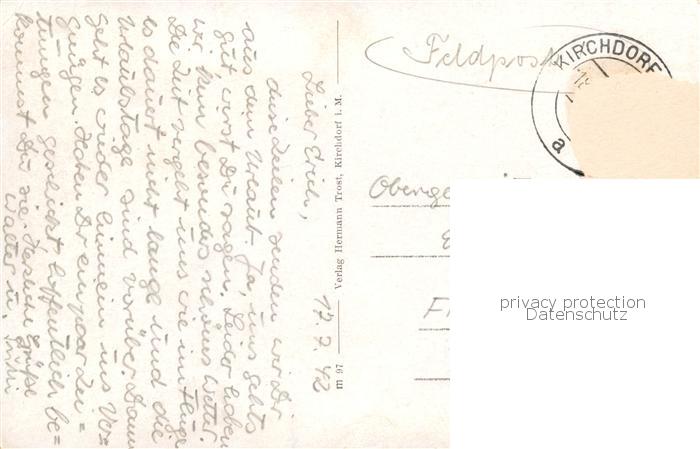 17.7.42
Lieber Erich,
diese Zeilen senden wir Dir
aus dem Urlaub. Ja, uns gehts
gut wirst Du sagen. Leider haben
wir kein besonders schönes Wetter.
Die Zeit vergeht uns wie im Fluge
es dauert nicht lange und die
Urlaubstage sind vorüber. Dann
geht es wieder hinein ins Ver=
gnügen. Haben Dir ein paar Zei=
tungen geschickt, hoffentlich be=
kommst Du sie. Herzliche Grüße
Walter u.
m 97
Verlag Hermann Trost, Kirchdorf i. M.
Feldpost
KIRCHDORF
a
Oberge
F
privacy protection
Datenschutz